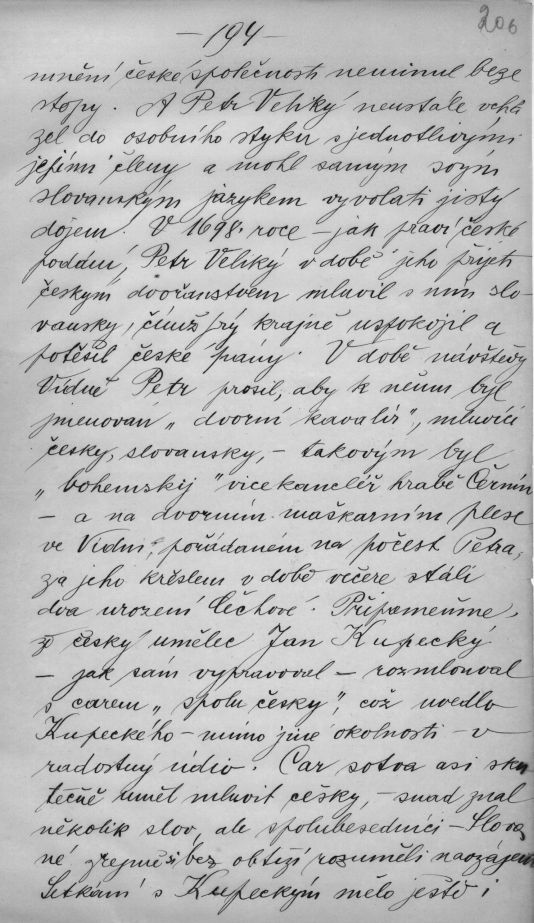 206
— 194 —
mínění české společnosti neminul beze
stopy. A Petr Veliký neustále vchá
zel do osobního styku s jednotlivými
jejími členy a mohl samým svým
slovanským jazykem vyvolati jistý
dojem. V 1698. roce – jak praví české
podání, Petr Veliký v době jeho přijetí
českým dvořanstvem mluvil s ním slo-
vansky, čímž prý krajně uspokojil a
potěšil české pány. V době návštěvy
Vídně Petr prosil, aby k němu byl
jmenován „dvorní kavalír", mluvící
česky, slovansky, – takovým byl
„bohemskij" vicekancléř hrabě Černín
– a na dvorním maškarním plese
ve Vídni, pořádaném na počest Petra,
za jeho křeslem v době večere stáli
dva urození Čechové. Připomeňme,
že český umělec Jan Kupecký
– jak sám vypravoval – rozmlouval
s carem „spolu česky", což uvedlo
Kupeckého – mimo jiné okolnosti – v
radostný údiv. Car sotva asi sku
tečně uměl mluvit česky, – snad znal
několik slov, ale spolubesedníci – Slova
né zřejmě si bez obtíží rozuměli navzájem
Setkání s Kupeckým mělo ještě i